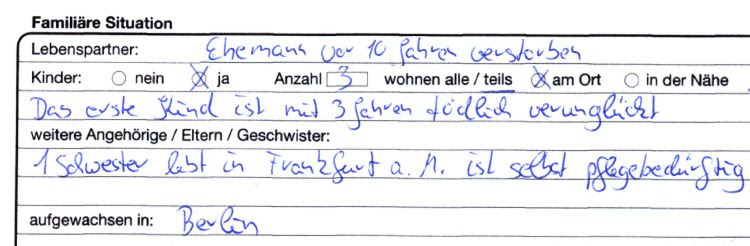 Familiäre Situation
Lebenspartner: Ehemann vor 10 Jahren verstorben
Kinder: nein ja Anzahl 3 wohnen alle / teils am Ort in der Nähe
Das erste Kind ist mit 3 Jahren tödlich verunglückt
weitere Angehörige / Eltern / Geschwister:
1 Schwester lebt in Frankfurt a. M. ist selbst pflegebedürftig
aufgewachsen in: Berlin